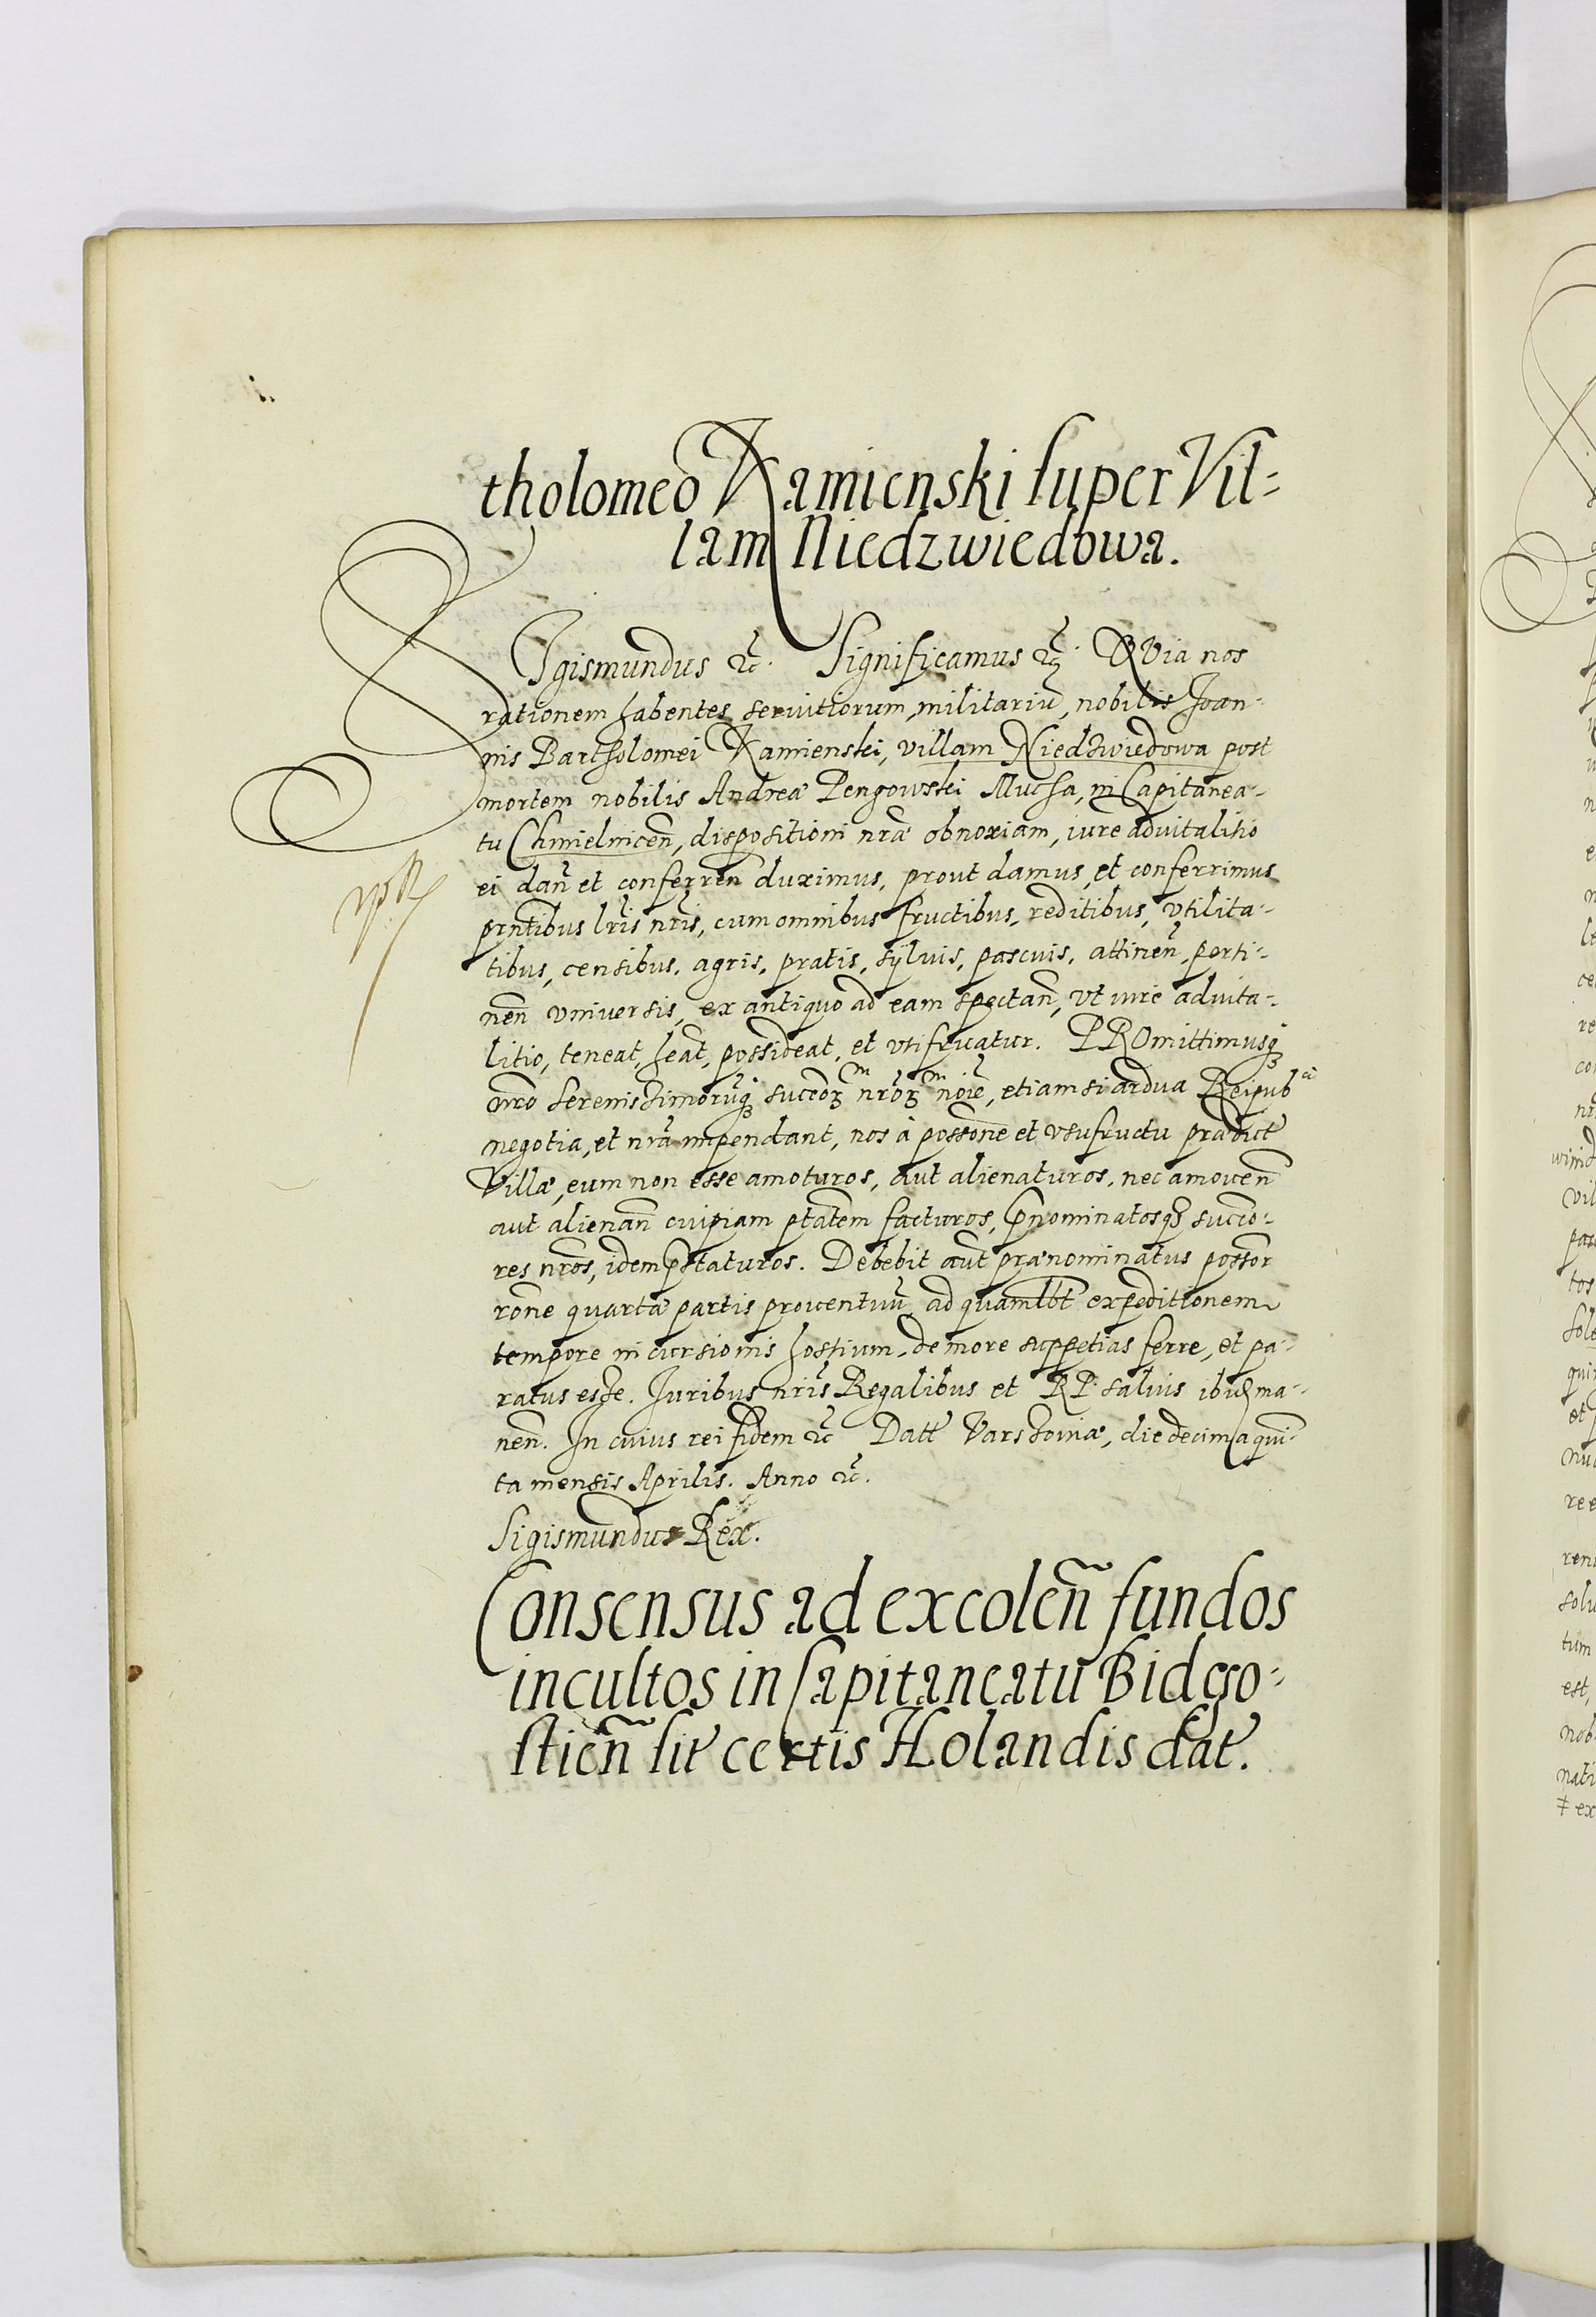 tholomeo Kamienski super Vil=
lam Niedzwiedowa.
SIgismundus &c̃. Significamus &c̃. QVia nos
rationem habentes servitiorum, militariũ, nobilis Joan-
nis Bartholomei Kamienski, villam Niedzwiedowa post
mortem nobilis Andreæ Pengowski Mucha, in Capitanea-
tu Chmielnicen̄, dispositioni nr̃æ obnoxiam, iure advitalitio
ei dan̄ et conferren̄ duximus, prout damus, et conferrimus
prn̄tibus lr̃is nr̃is, cum omnibus fructibus, reditibus, vtilita-
tibus, censibus, agris, pratis, sÿluis, pascuis, attinen̄, perti-
nen̄ vniversis, ex antiquo ad eam spectan̄, vt iure advita-
litio, teneat, heat, possideat, et vtifruatur. PROmittimusq;
nr̃o serenissimorũq; succõꝝ nr̃oꝝ nõie, etiamsi ardua Reipub
negotia, et nr̃a impendant, nos à possõne et vsufructu prædictꝭ
Villæ, eum non esse amoturos, aut alienaturos, nec amoven̄
aut alienan̄ cuipiam ptãtem facturos, p̃nominatosq; succo-
res nr̃os, idem p̃staturos. Debebit aũt prænominatus possõr
rõne quartæ partis proventuũ, ad quamlbt expeditionem
tempore incursionis hostium, de more suppetias ferre, et pa-
ratus esse. Juribus nr̃is Regalibus et RP. salvis ibid̃ ma-
nen̄. In cuius rei fidem &c̃ Datt Varshoviæ, die decima quin-
ta mensis Aprilis. Anno &c̃.
Sigismundus Rex.
Consensus ad excolen̄ fundos
incultos in Capitaneatu Bidgo-
stien̄ sit certis Holandis dat.